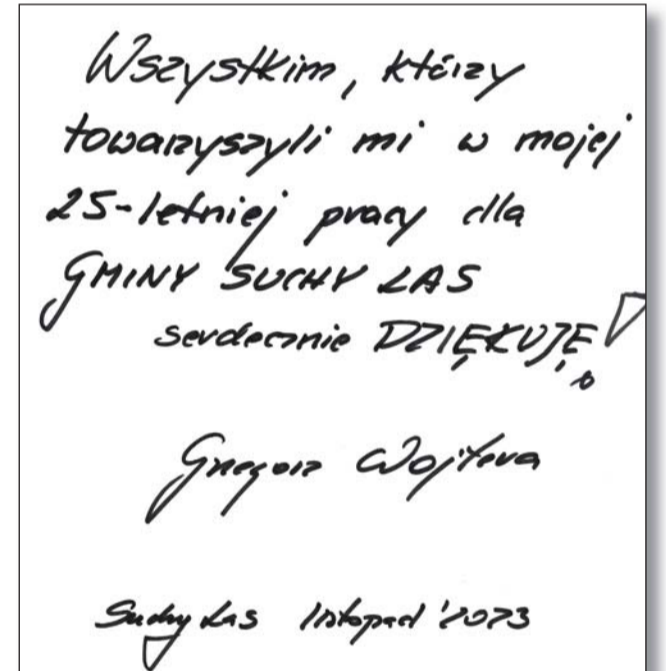 Wszystkim, którzy
towarzyszyli mi w mojej
25-letniej pracy dla
GMINY SUCHY LAS
serdecznie DZIĘKUJĘ!
Grzegorz Wojtera
Suchy Las listopad '2023